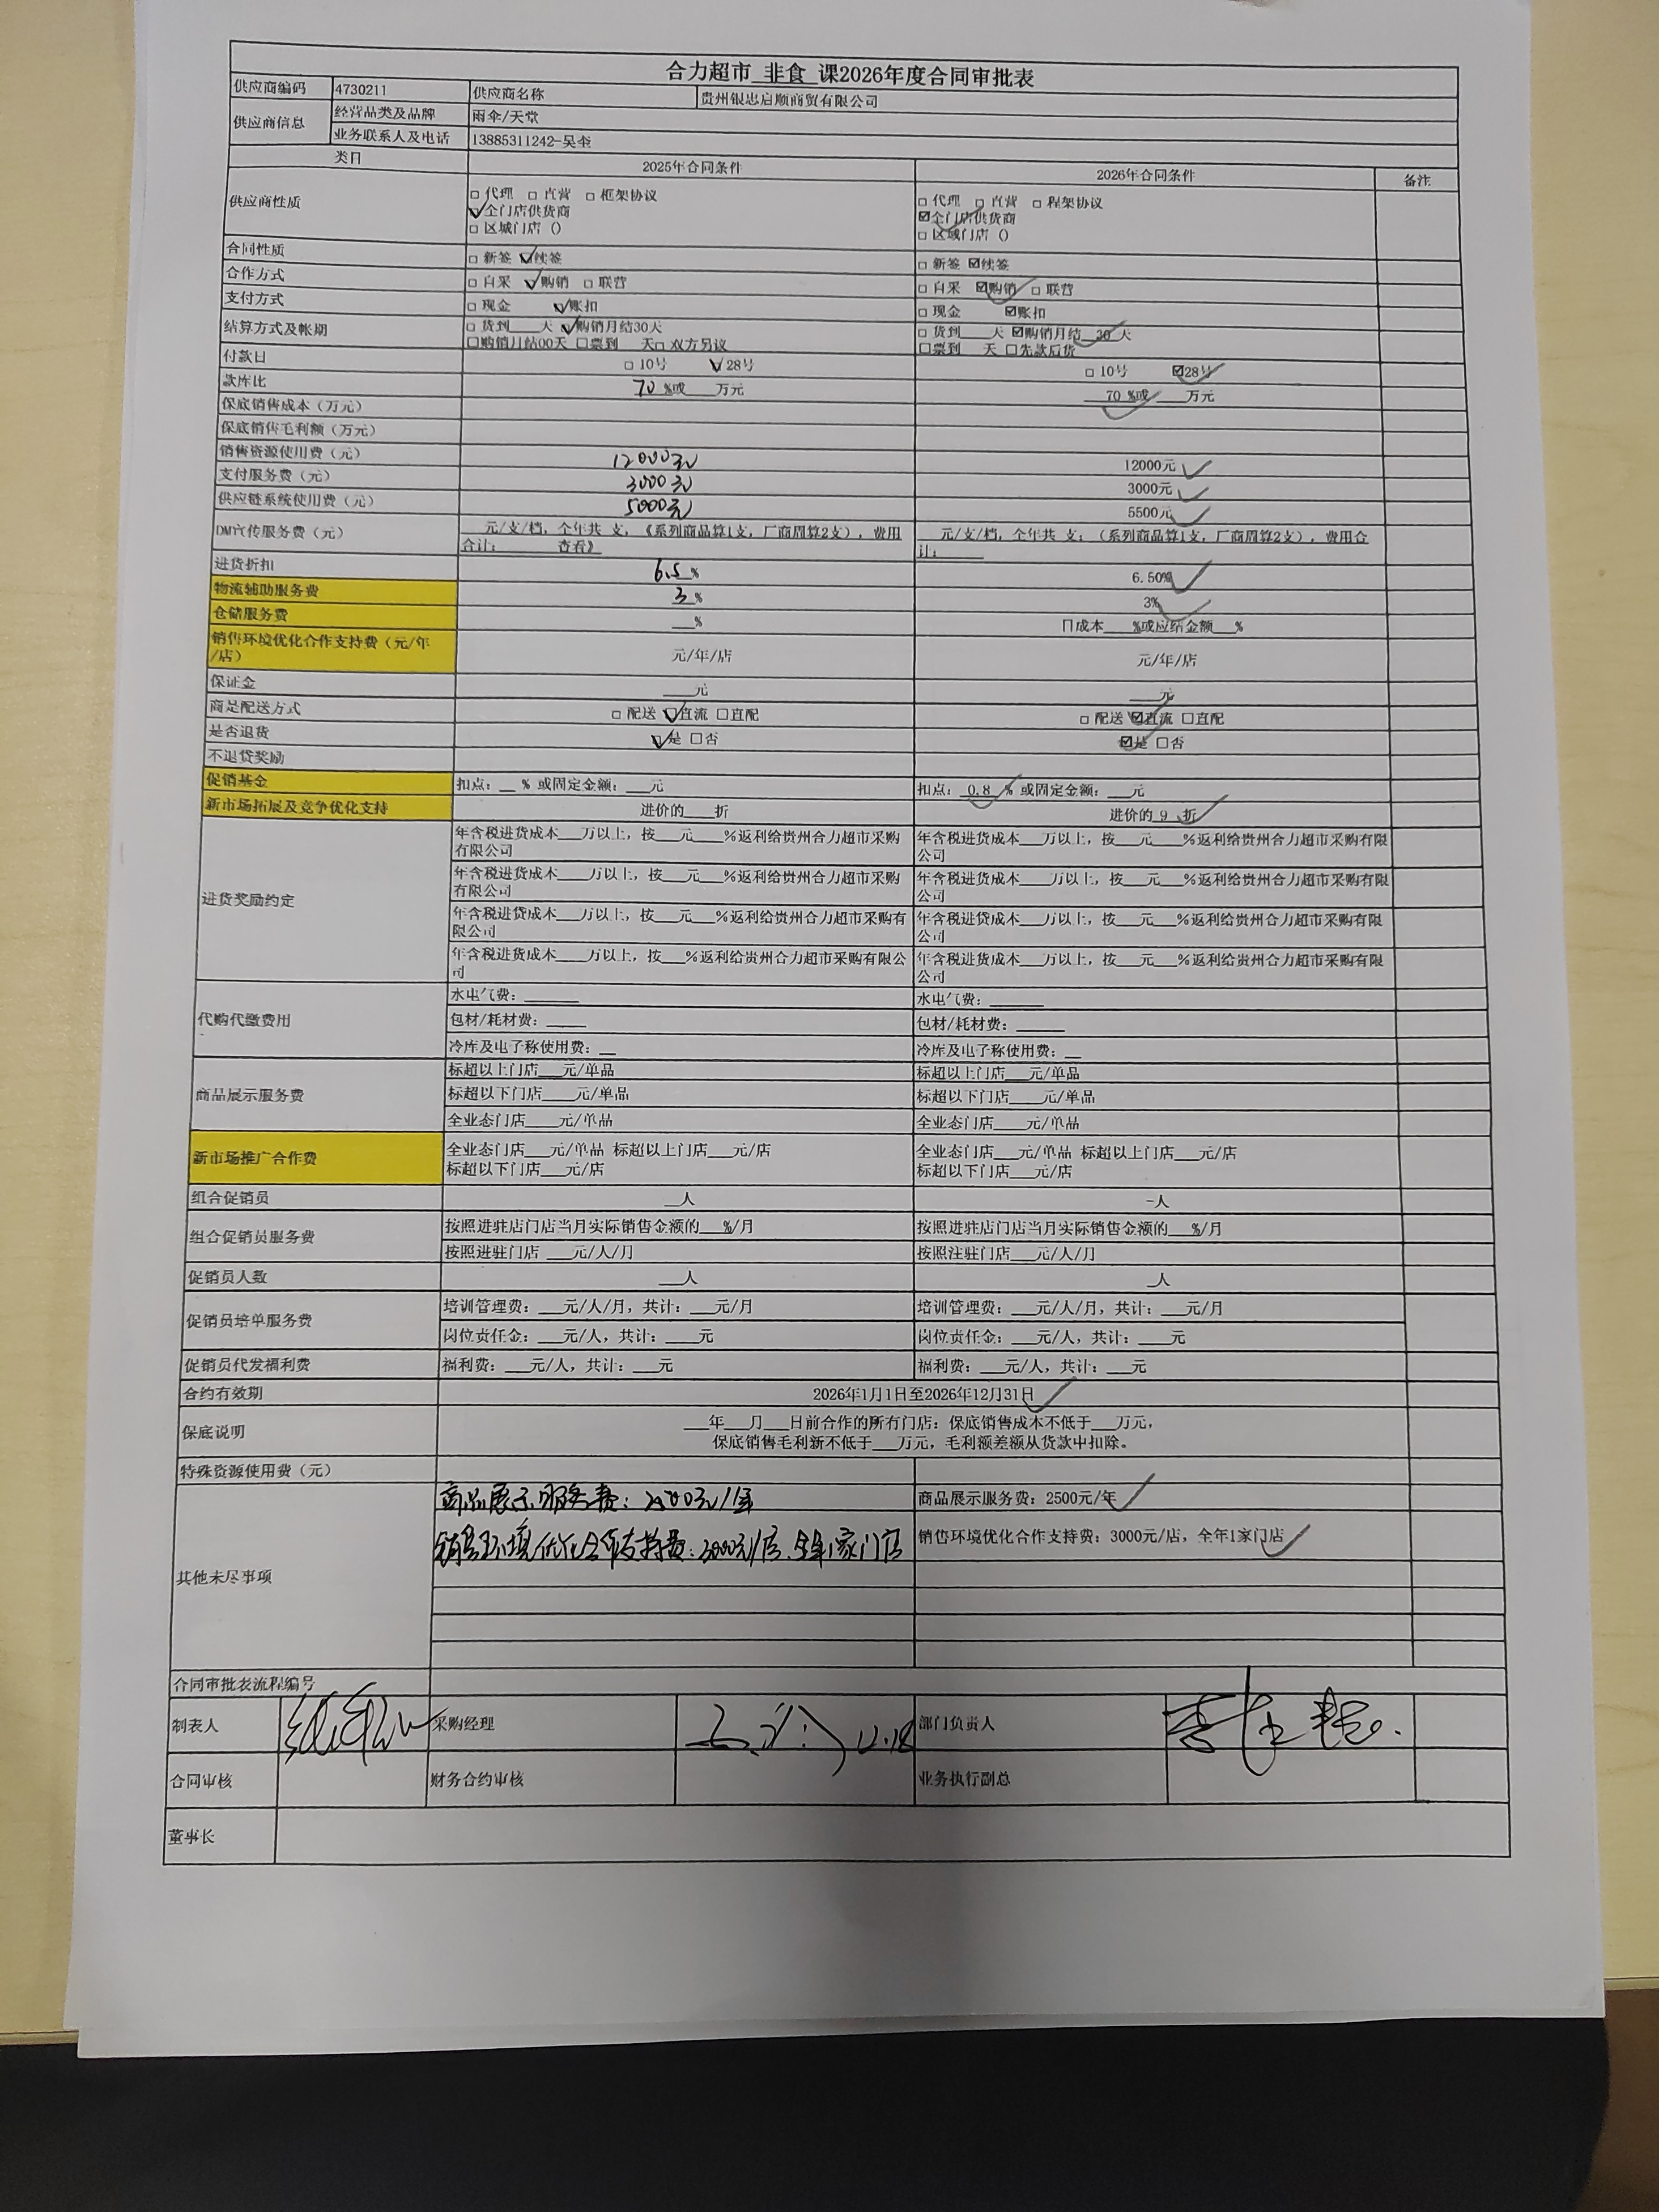 合力超市 非食 课2026年度合同审批表
供应商编码 4730211 供应商名称 贵州银忠启顺商贸有限公司
供应商信息 经营品类及品牌 雨伞/天堂
业务联系人及电话 13885311242-吴奎
类目 2025年合同条件 2026年合同条件 备注
供应商性质
□ 代理 □ 直营 □ 框架协议
☑全门店供货商
□ 区域门店 ()
□ 代理 □ 直营 □ 程架协议
☑全门店供货商
□ 区域门店 ()
合同性质 □ 新签 ☑续签 □ 新签 ☑续签
合作方式 □ 自采 ☑购销 □ 联营 □ 自采 ☑购销 □ 联营
支付方式 □ 现金 ☑账扣 □ 现金 ☑账扣
结算方式及帐期
□ 货到___天 ☑购销月结30天
□购销月结00天 □票到 天□ 双方另议
□ 货到___天 ☑购销月结_30_天
□票到 天 □先款后货
付款日 □ 10号 ☑28号 □ 10号 ☑28号
款库比 70 %或___万元 70 %或___万元
保底销售成本(万元)
保底销售毛利额(万元)
销售资源使用费(元) 12000元 12000元
支付服务费(元) 3000元 3000元
供应链系统使用费(元) 5000元 5500元
DM宣传服务费(元)
___元/支/档,全年共 支,《系列商品算1支,厂商周算2支),费用
合计:______ 查看》
___元/支/档,全年共 支;(系列商品算1支,厂商周算2支),费用合
计:______
进货折扣 6.5 % 6.50%
物流辅助服务费 3 % 3%
仓储服务费 __% □成本___%或应结金额___%
销售环境优化合作支持费(元/年
/店) 元/年/店 元/年/店
保证金 ____元 ____元
商是配送方式 □ 配送 ☑直流 □直配 □ 配送 ☑直流 □直配
是否退货 ☑是 □否 ☑是 □否
不退贷奖励
促销基金 扣点:__ % 或固定金额:___元 扣点:_0.8_ % 或固定金额:___元
新市场拓展及竞争优化支持 进价的____折 进价的_9_折
进货奖励约定
年含税进货成本___万以上,按___元____%返利给贵州合力超市采购
有限公司
年含税进货成本___万以上,按___元____%返利给贵州合力超市采购有限
公司
年含税进货成本____万以上,按___元____%返利给贵州合力超市采购
有限公司
年含税进货成本___万以上,按___元____%返利给贵州合力超市采购有限
公司
年含税进贷成本___万以上,按___元___%返利给贵州合力超市采购有
限公司
年含税进货成本___万以上,按___元___%返利给贵州合力超市采购有限
公司
年含税进货成本____万以上,按___%返利给贵州合力超市采购有限公
司
年含税进货成本___万以上,按___元___%返利给贵州合力超市采购有限
公司
代购代缴费用
水电气费:_______ 水电气费:_______
包材/耗材费:_____ 包材/耗材费:______
冷库及电子称使用费:__ 冷库及电子称使用费:__
商品展示服务费
标超以上门店___元/单品 标超以上门店___元/单品
标超以下门店____元/单品 标超以下门店____元/单品
全业态门店____元/单品 全业态门店____元/单品
新市场推广合作费
全业态门店___元/单品 标超以上门店___元/店
标超以下门店___元/店
全业态门店___元/单品 标超以上门店___元/店
标超以下门店___元/店
组合促销员 __人 -人
组合促销员服务费
按照进驻店门店当月实际销售金额的___%/月 按照进驻店门店当月实际销售金额的___%/月
按照进驻门店 ___元/人/月 按照注驻门店___元/人/月
促销员人数 ___人 __人
促销员培单服务费
培训管理费:___元/人/月,共计:___元/月 培训管理费:___元/人/月,共计:___元/月
岗位责任金:___元/人,共计:___元 岗位责任金:___元/人,共计:___元
促销员代发福利费 福利费:___元/人,共计:___元 福利费:___元/人,共计:___元
合约有效期 2026年1月1日至2026年12月31日
保底说明
___年___月___日前合作的所有门店:保底销售成本不低于___万元,
保底销售毛利新不低于___万元,毛利额差额从货款中扣除。
特殊资源使用费(元)
其他未尽事项
商品展示服务费: 元/年 商品展示服务费:2500元/年
销售环境优化合作支持费:3000元/店、全年1家门店 销售环境优化合作支持费:3000元/店,全年1家门店
合同审批表流程编号
制表人 采购经理 12.18 部门负责人
合同审核 财务合约审核 业务执行副总
董事长